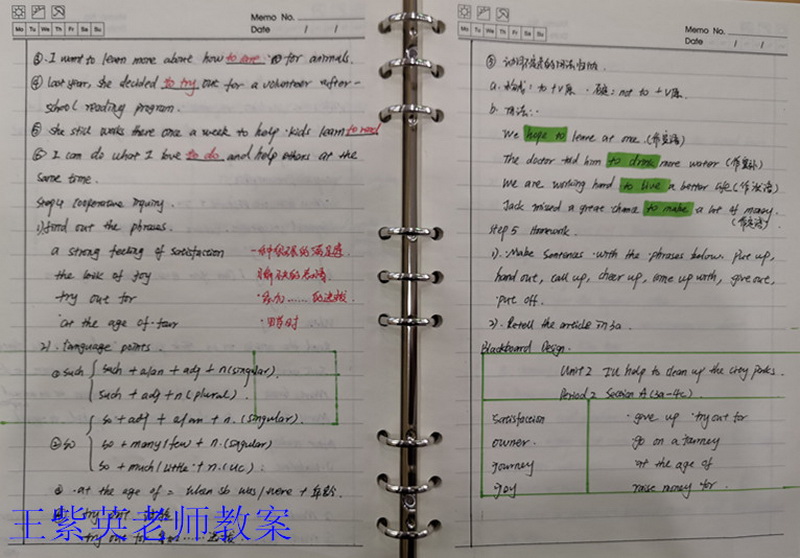 Memo No.
Mo Tu We Th Fr Sa Su
Date / /
③. I want to learn more about how to care for animals.
④ last year, she decided to try out for a volunteer after-
school reading program.
⑤ she still works there once a week to help kids learn to read
⑥ I can do what I love to do and help others at the
same time.
Step 4 Cooperative inquiry
1). Find out the phrases.
a strong feeling of satisfaction 一种强烈的满足感
the look of joy
try out for 参加……的选拔
at the age of four 四岁时
2). language points.
① such
such + a/an + adj + n (singular).
such + adj + n (plural).
② so
so + adj + a/an + n. (singular).
so + many/few + n. (singular)
so + much/little + n. (uc)
③ at the age of = when sb was/were + 年龄.
try out
try out for 参加……选拔
王紫英老师教案
Memo No.
Mo Tu We Th Fr Sa Su
Date / /
③ 动词不定式的用法归纳.
a. 构成: to + V原. 否定: not to + V原.
b. 用法:
We hope to leave at once (作宾语)
The doctor told him to drink more water (作宾补)
We are working hard to live a better life (作状语)
Jack missed a great chance to make a lot of money.
(作定语)
Step 5 Homework.
1). Make sentences with the phrases below. Put up,
hand out, call up, cheer up, come up with, give out,
put off.
2). Retell the article in 3a.
Blackboard Design.
Unit 2 I'll help to clean up the city parks.
Period 2 Section A (3a-4c)
satisfaction give up try out for
owner. go on a journey
journey at the age of
joy raise money for